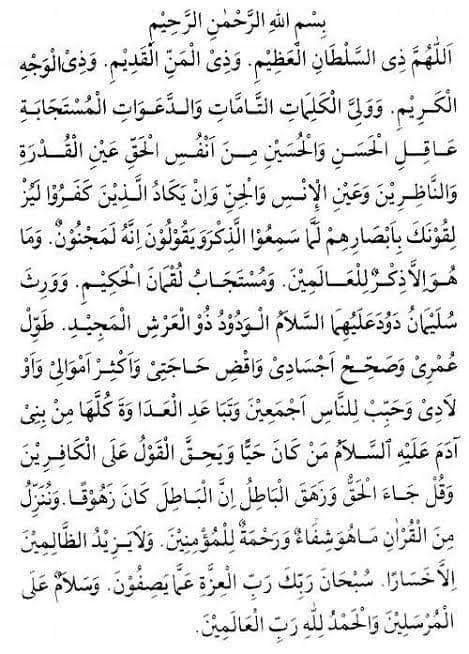 بِسْمِ اللهِ الرَّحْمٰنِ الرَّحِيْمِ
اَللّٰهُمَّ ذِى السَّلْطَانِ الْعَظِيْمِ. وَذِىْ الْمَنِّ الْقَدِيْمِ. وَذِىْ الْوَجْهِ
الْكَرِيْمِ. وَوَلِىِّ الْكَلِمَاتِ التَّامَّاتِ وَالدَّعَوَاتِ الْمُسْتَجَابَةِ
عَاقِلِ الْحَسَنِ وَالْحُسَيْنِ مِنَ اَنْفُسِ الْحَقِّ عَيْنِ الْقُدْرَةِ
وَالنَّاظِرِيْنَ وَعَيْنِ الْاِنْسِ وَالْجِنِّ وَاِنْ يَكَادُ الَّذِيْنَ كَفَرُوْا لَيُزْ
لِقُوْنَكَ بِاَبْصَارِهِمْ لَمَّا سَمِعُوْا الذِّكْرَوَيَقُوْلُوْنَ اِنَّهُ لَمَجْنُوْنٌ. وَمَا
هُوَ اِلاَّ ذِكْرٌ لِلْعَالَمِيْنَ. وَمُسْتَجَابُ لُقْمَانَ الْحَكِيْمِ. وَوَرِثَ
سُلَيْمَانُ دَوُدَعَلَيْهِمَا السَّلاَمُ الْوَدُوْدُ ذُو الْعَرْشِ الْمَجِيْدِ. طَوِّلْ
عُمْرِىْ وَصَحِّحْ اَجْسَادِىْ وَاقْضِ حَاجَتِىْ وَاَكْثِرْ اَمْوَالِىْ وَاَوْ
لَادِىْ وَحَبِّبْ لِلنَّاسِ اَجْمَعِيْنَ وَتَبَا عَدِ الْعَدَا وَةَ كُلَّهَا مِنْ بَنِىْ
آدَمَ عَلَيْهِ السَّلاَمُ مَنْ كَانَ حَيًّا وَيَحِقَّ الْقَوْلُ عَلَى الْكَافِرِيْنَ
وَقُلْ جَاءَ الْحَقُّ وَزَهَقَ الْبَاطِلُ اِنَّ الْبَاطِلَ كَانَ زَهُوْقًا. وَنُنَزِّلُ
مِنَ الْقُرْاٰنِ مَاهُوَشِفَاءٌ وَرَحْمَةٌ لِلْمُؤْمِنِيْنَ. وَلاَيَزِيْدُ الظَّالِمِيْنَ
اِلاَّخَسَارًا. سُبْحَانَ رَبِّكَ رَبِّ الْعِزَّةِ عَمَّا يَصِفُوْنَ. وَسَلاَمٌ عَلَى
الْمُرْسَلِيْنَ وَالْحَمْدُ لِلّٰهِ رَبِّ الْعَالَمِيْنَ.